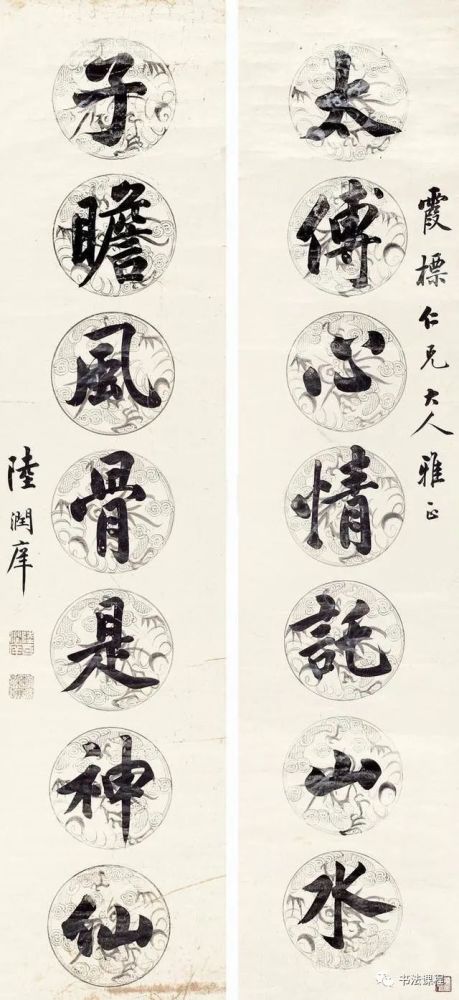 霞標仁兄大人雅正
太傅心情託山水
子瞻風骨是神仙
陸潤庠
书法课程